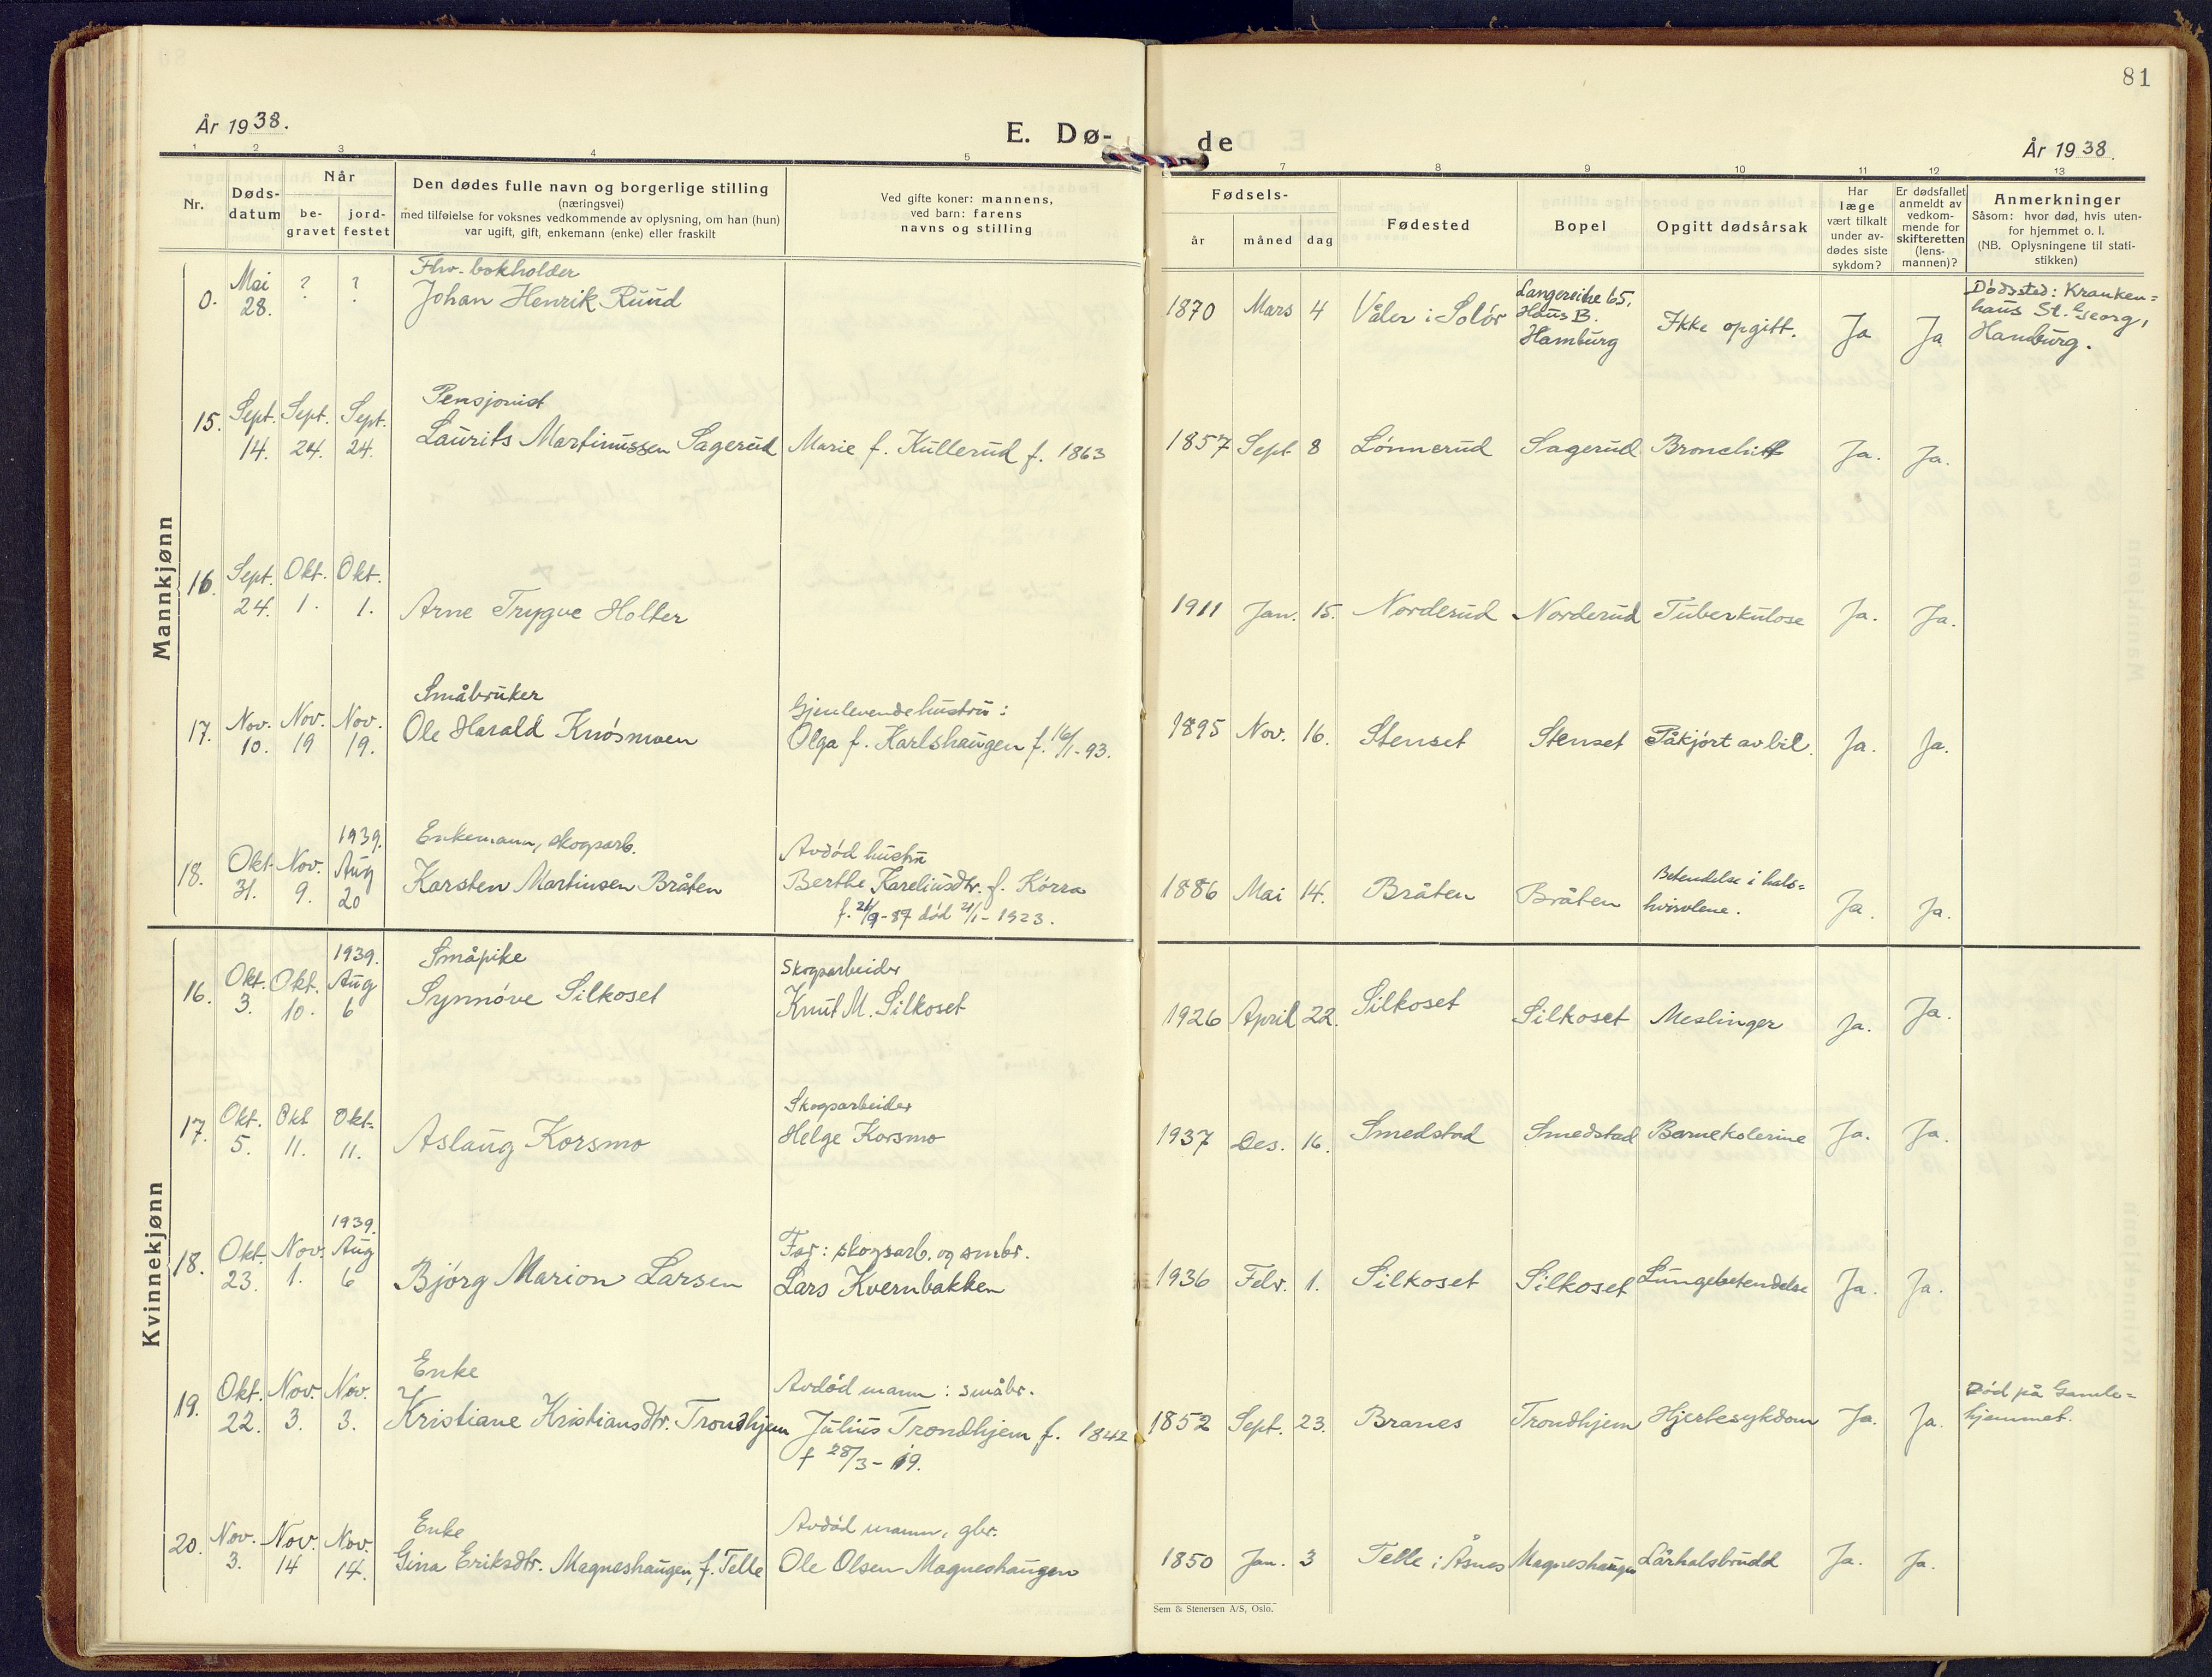 81
År 1938.
E. Dø-de
År 1938.
1 2 3 4 5 7 8 9 10 11 12 13
Nr.
Døds-datum
Når
be-gravet
jord-festet
Den dødes fulle navn og borgerlige stilling
(næringsvei)
med tilføielse for voksnes vedkommende av oplysning, om han (hun)
var ugift, gift, enkemann (enke) eller fraskilt
Ved gifte koner: mannens,
ved barn: farens
navns og stilling
Fødsels-
år måned dag
Fødested
Bopel
Opgitt dødsårsak
Har
læge
vært tilkalt
under av-
dødes siste
sykdom?
Er dødsfallet
anmeldt av
vedkom-
mende for
skifteretten
(lens-
mannen)?
Anmerkninger
Såsom: hvor død, hvis uten-
for hjemmet o. l.
(NB. Oplysningene til stati-
stikken)
Mannkjønn
0. Mai 28. ? ? Fhv. bokholder
Johan Henrik Ruud
1870 Mars 4 Våler i Solør
Langereihe 65,
Haus B.
Hamburg
Ikke opgitt. Ja Ja
Dødssted: Kranken=
haus St. Georg,
Hamburg.
15. Sept. 14. Sept. 24. Sept. 24. Pensjonist
Laurits Martinussen Sagerud Marie f. Kullerud f. 1863
1857 Sept 8 Lønnerud Sagerud Bronchitt Ja. Ja.
16. Sept. 24. Okt. 1. Okt. 1. Arne Trygve Holter
1911 Jan. 15. Norderud Norderud Tuberkulose Ja. Ja.
17. Nov. 10. Nov. 19 Nov. 19. Småbruker
Ole Harald Knøsmoen
Gjenlevende hustru:
Olga f. Karlshaugen f. 16/1-93.
1895 Nov. 16. Stenset Stenset Påkjørt av bil. Ja. Ja.
18. Okt. 31. Nov. 9. 1939. Aug 20 Enkemann, skogsarb.
Karsten Martinsen Bråten
Avdød hustru
Berthe Kareliusdtr. f. Kørra
f. 21/9-87 død 21/1-1923.
1886 Mai 14. Bråten Bråten
Betendelse i hals=
hvirvlene.
Ja. Ja.
Kvinnekjønn
16. Okt. 3. Okt. 10. 1939. Aug 6 Småpike
Synnøve Silkoset
Skogsarbeider
Knut M. Silkoset
1926 April 22. Silkoset Silkoset Meslinger Ja. Ja.
17. Okt. 5. Okt 11. Okt. 11. Aslaug Korsmo
Skogsarbeider
Helge Korsmo
1937 Des. 16. Smedstad Smedstad Barnekolerine Ja. Ja.
18. Okt. 23. Nov. 1. 1939. Aug 6 Bjørg Marion Larsen
Far: skogsarb. og smbr.
Lars Kvernbakken
1936 Febr. 1. Silkoset Silkoset Lungebetendelse Ja. Ja.
19. Okt. 22. Nov. 3. Nov. 3. Enke
Kristiane Kristiansdtr. Trondhjem
Avdød mann: småbr.
Julius Trondhjem f. 1842
† 28/3-19.
1852 Sept. 23. Branes Trondhjem Hjertesykdom Ja. Ja.
Død på Gamle=
hjemmet.
20. Nov. 3. Nov. 14 Nov. 14. Enke
Gina Eriksdtr. Magneshaugen, f. Telle
Avdød mann, gbr.
Ole Olsen Magneshaugen
1850 Jan. 3 Telle i Åsnes Magneshaugen Lårhalsbrudd Ja. Ja.
Sem & Stenersen A/S, Oslo.